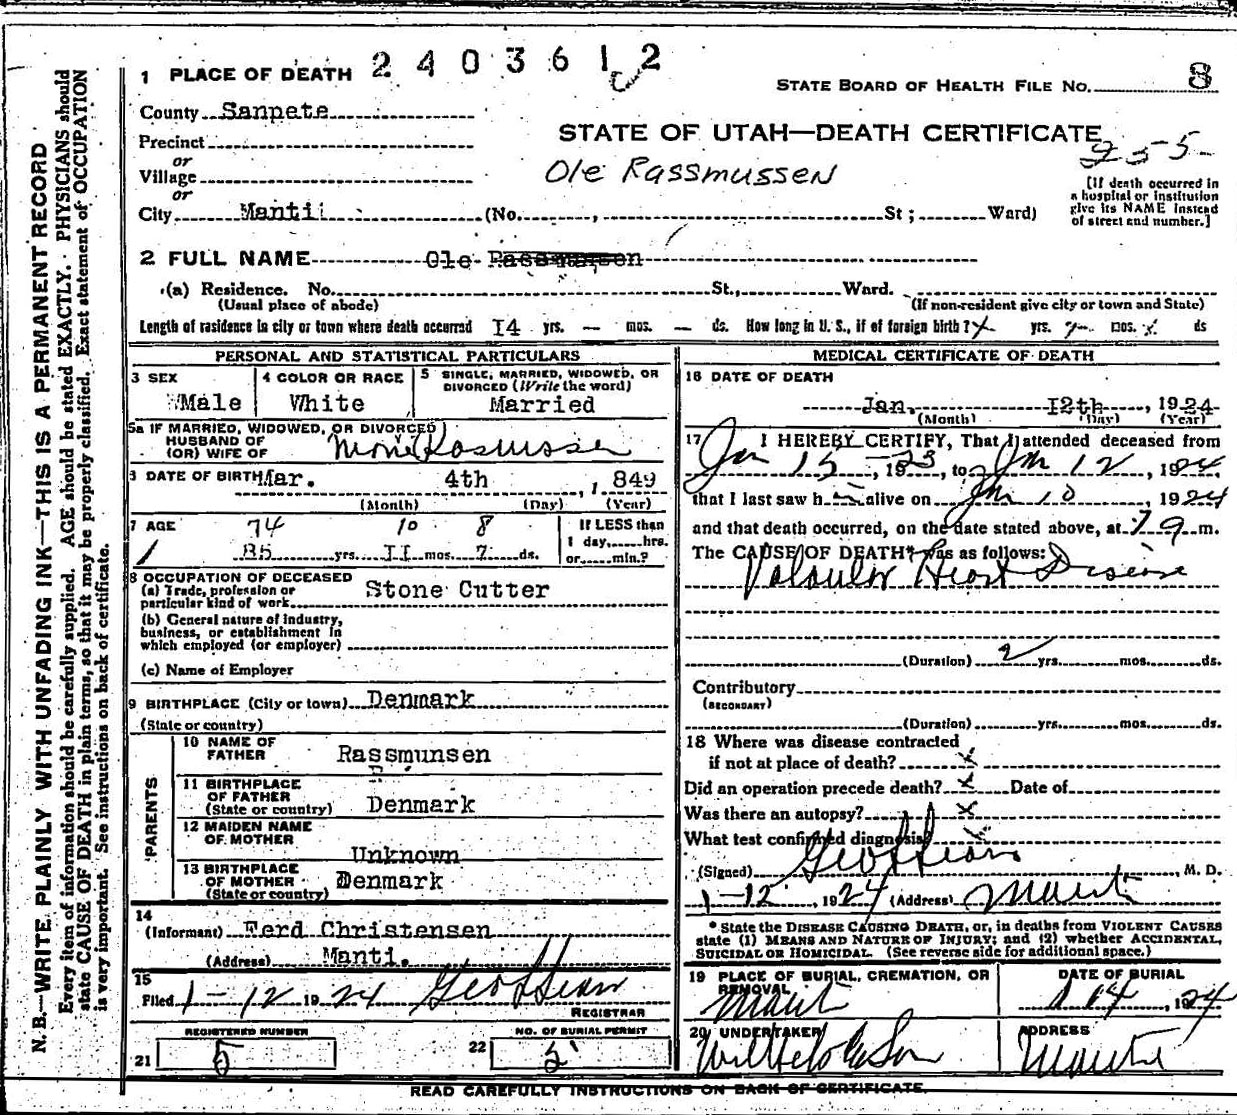 2 4 0 3 6 1 2
1 PLACE OF DEATH
STATE BOARD OF HEALTH FILE No. 8
County Sanpete
STATE OF UTAH—DEATH CERTIFICATE
255
Precinct
or
Village
Ole Rassmussen
[If death occurred in
a hospital or institution
give its NAME instead
of street and number.]
or
City Manti (No. , St ; Ward)
2 FULL NAME Ole Rassmunsen
(a) Residence. No. St., Ward.
(Usual place of abode) (If non-resident give city or town and State)
Length of residence in city or town where death occurred I4 yrs. — mos. — ds. How long in U. S., if of foreign birth? yrs. mos. ds
PERSONAL AND STATISTICAL PARTICULARS
3 SEX
Male
4 COLOR OR RACE
White
5 SINGLE, MARRIED, WIDOWED, OR
DIVORCED (Write the word)
Married
5a IF MARRIED, WIDOWED, OR DIVORCED
HUSBAND OF
(OR) WIFE OF
6 DATE OF BIRTH Mar. 4th , 1 849
(Month) (Day) (Year)
7 AGE 74 10 8
85 yrs. II mos. 7 ds.
If LESS than
1 day, hrs.
or min.?
8 OCCUPATION OF DECEASED
(a) Trade, profession or
particular kind of work Stone Cutter
(b) General nature of industry,
business, or establishment in
which employed (or employer)
(c) Name of Employer
9 BIRTHPLACE (City or town) Denmark
(State or country)
PARENTS
10 NAME OF
FATHER Rassmunsen
11 BIRTHPLACE
OF FATHER
(State or country) Denmark
12 MAIDEN NAME
OF MOTHER
Unknown
13 BIRTHPLACE
OF MOTHER
(State or country) Denmark
14
(Informant) Ferd Christensen
(Address) Manti.
15
Filed 1-12 1924
REGISTRAR
REGISTERED NUMBER
21 5
NO. OF BURIAL PERMIT
22 5
MEDICAL CERTIFICATE OF DEATH
16 DATE OF DEATH
Jan. I2th , 1924
(Month) (Day) (Year)
17 I HEREBY CERTIFY, That I attended deceased from
Jan 15 , 1923, to Jan 12 , 1924
that I last saw h alive on Jan 10 1924
and that death occurred, on the date stated above, at 9 m.
The CAUSE OF DEATH* was as follows:
Valvular Heart Disease
(Duration) 2 yrs. mos. ds.
Contributory
(SECONDARY)
(Duration) yrs. mos. ds.
18 Where was disease contracted
if not at place of death? x
Did an operation precede death? x Date of
Was there an autopsy? x
What test confirmed diagnosis? x
(Signed) , M. D.
1-12 , 1924 (Address) Manti
* State the DISEASE CAUSING DEATH, or, in deaths from VIOLENT CAUSES
state (1) MEANS AND NATURE OF INJURY; and (2) whether ACCIDENTAL,
SUICIDAL OR HOMICIDAL. (See reverse side for additional space.)
19 PLACE OF BURIAL, CREMATION, OR
REMOVAL
Manti
DATE OF BURIAL
1 14 , 1924
20 UNDERTAKER
ADDRESS
Manti
READ CAREFULLY INSTRUCTIONS ON BACK OF CERTIFICATE.
N. B.—WRITE PLAINLY WITH UNFADING INK—THIS IS A PERMANENT RECORD
Every item of information should be carefully supplied. AGE should be stated EXACTLY. PHYSICIANS should
state CAUSE OF DEATH in plain terms, so that it may be properly classified. Exact statement of OCCUPATION
is very important. See instructions on back of certificate.